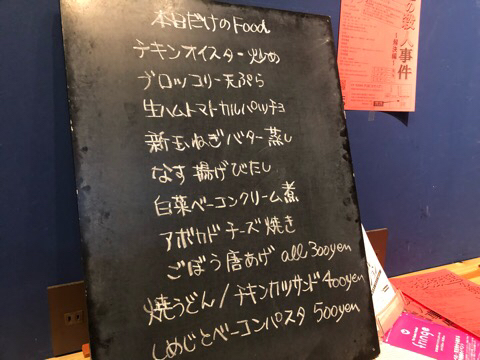 本日だけのFood
チキンオイスター炒め
ブロッコリー天ぷら
生ハムトマトカルパッチョ
新玉ねぎバター蒸し
なす揚げびたし
白菜ベーコンクリーム煮
アボカドチーズ焼き
ごぼう唐あげ all 300yen
焼うどん/チキンカツサンド 400yen
しめじとベーコンパスタ 500yen
の殺人事件
fringe